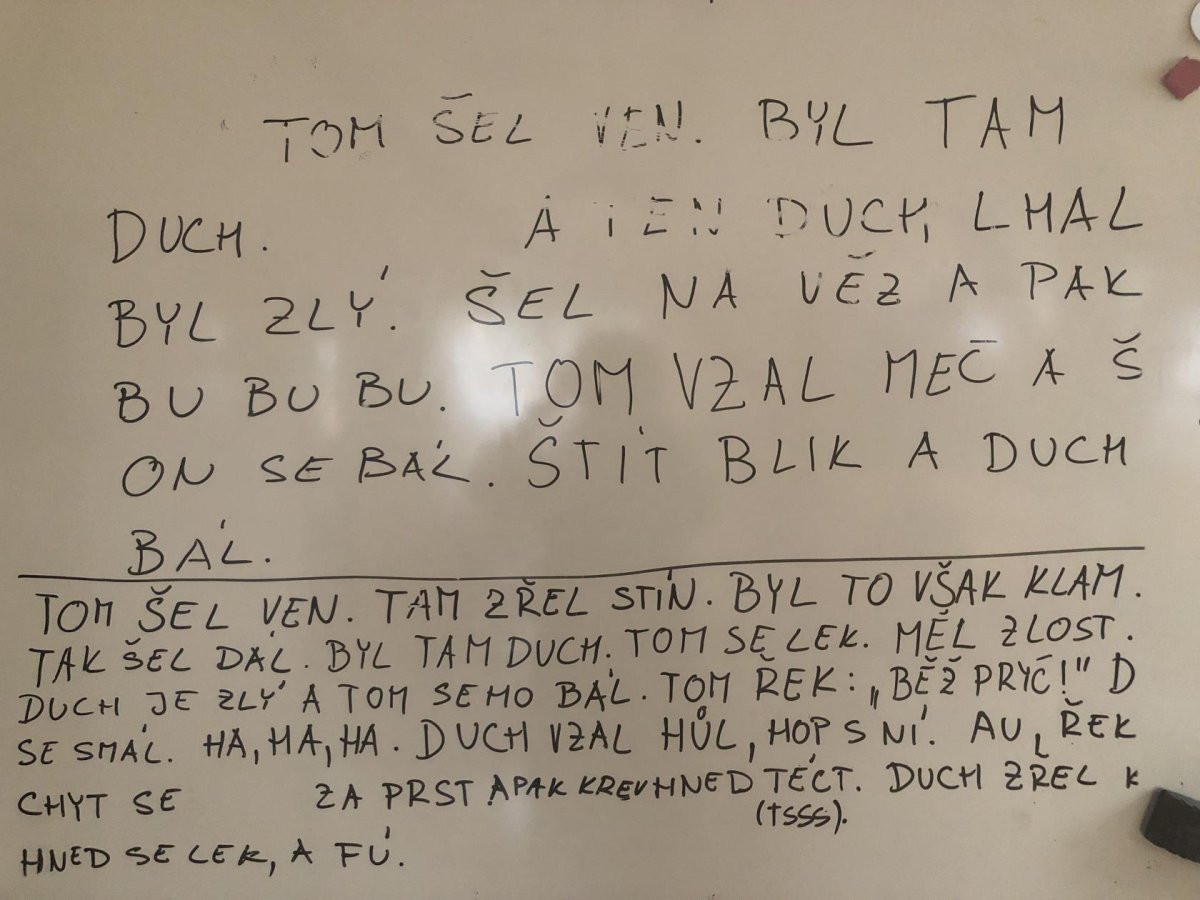 TOM ŠEL VEN. BYL TAM
DUCH. A TEN DUCH, LHAL
BYL ZLÝ. ŠEL NA VĚŽ A PAK
BU BU BU. TOM VZAL MEČ A Š
ON SE BÁL. ŠTÍT BLIK A DUCH
BÁL.
TOM ŠEL VEN. TAM ZŘEL STÍN. BYL TO VŠAK KLAM.
TAK ŠEL DÁL. BYL TAM DUCH. TOM SE LEK. MĚL ZLOST.
DUCH JE ZLÝ A TOM SE HO BÁL. TOM ŘEK: „BĚŽ PRYČ!" D
SE SMÁL. HA, HA, HA. DUCH VZAL HŮL, HOP S NÍ. AU, ŘEK
CHYT SE ZA PRST A PAK KREV HNED TÉCT. DUCH ZŘEL K
(TSSS).
HNED SE LEK, A FÚ.